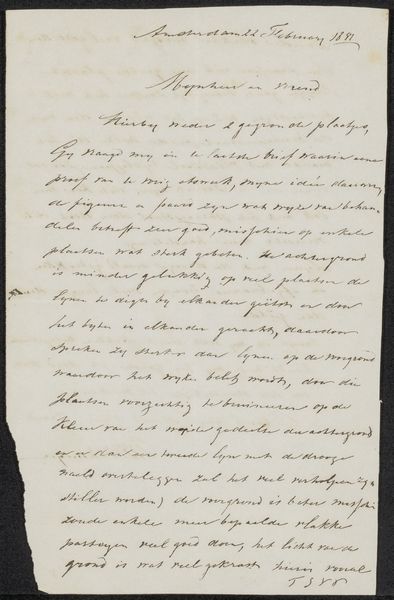 Amsterdam 22 February 1841
Mynheer en Vriend
Hierby weder 2 gegronde plaatjes,
Gy vraagd my in te laatste brief waarin eene
proef van te wrig etswerk, myne idée daarvan,
de figuren en paard zyn wat wyze van behan-
delen betreft zeer goed, misschien op enkele
plaatsen wat sterk gebeten. de achtergrond
is minder gelukkig op veel plaatsen de
lynen te digt by elkander geëtst en door
het byten in elkander geraakt, daardoor
spreken zy sterker dan lynen op de voorgrond
waardoor het wyken belet wordt, door die
plaatsen voorzichtig te bruineeren op de
kleur van het wyde gedeelte der achtergrond
en dan een tweede lyn met de drooge
naald overteleggen zal het veel verholpen zyn
stiller worden) de voorgrond is beter
zoude enkele meer bepaalde vlakke
partayen veel goed doen, het licht van de
grond is wat veel gekrast hierin vooral